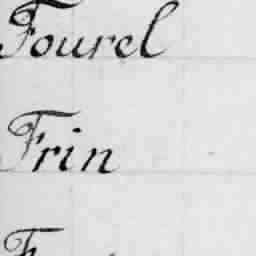 Fourel
Frin